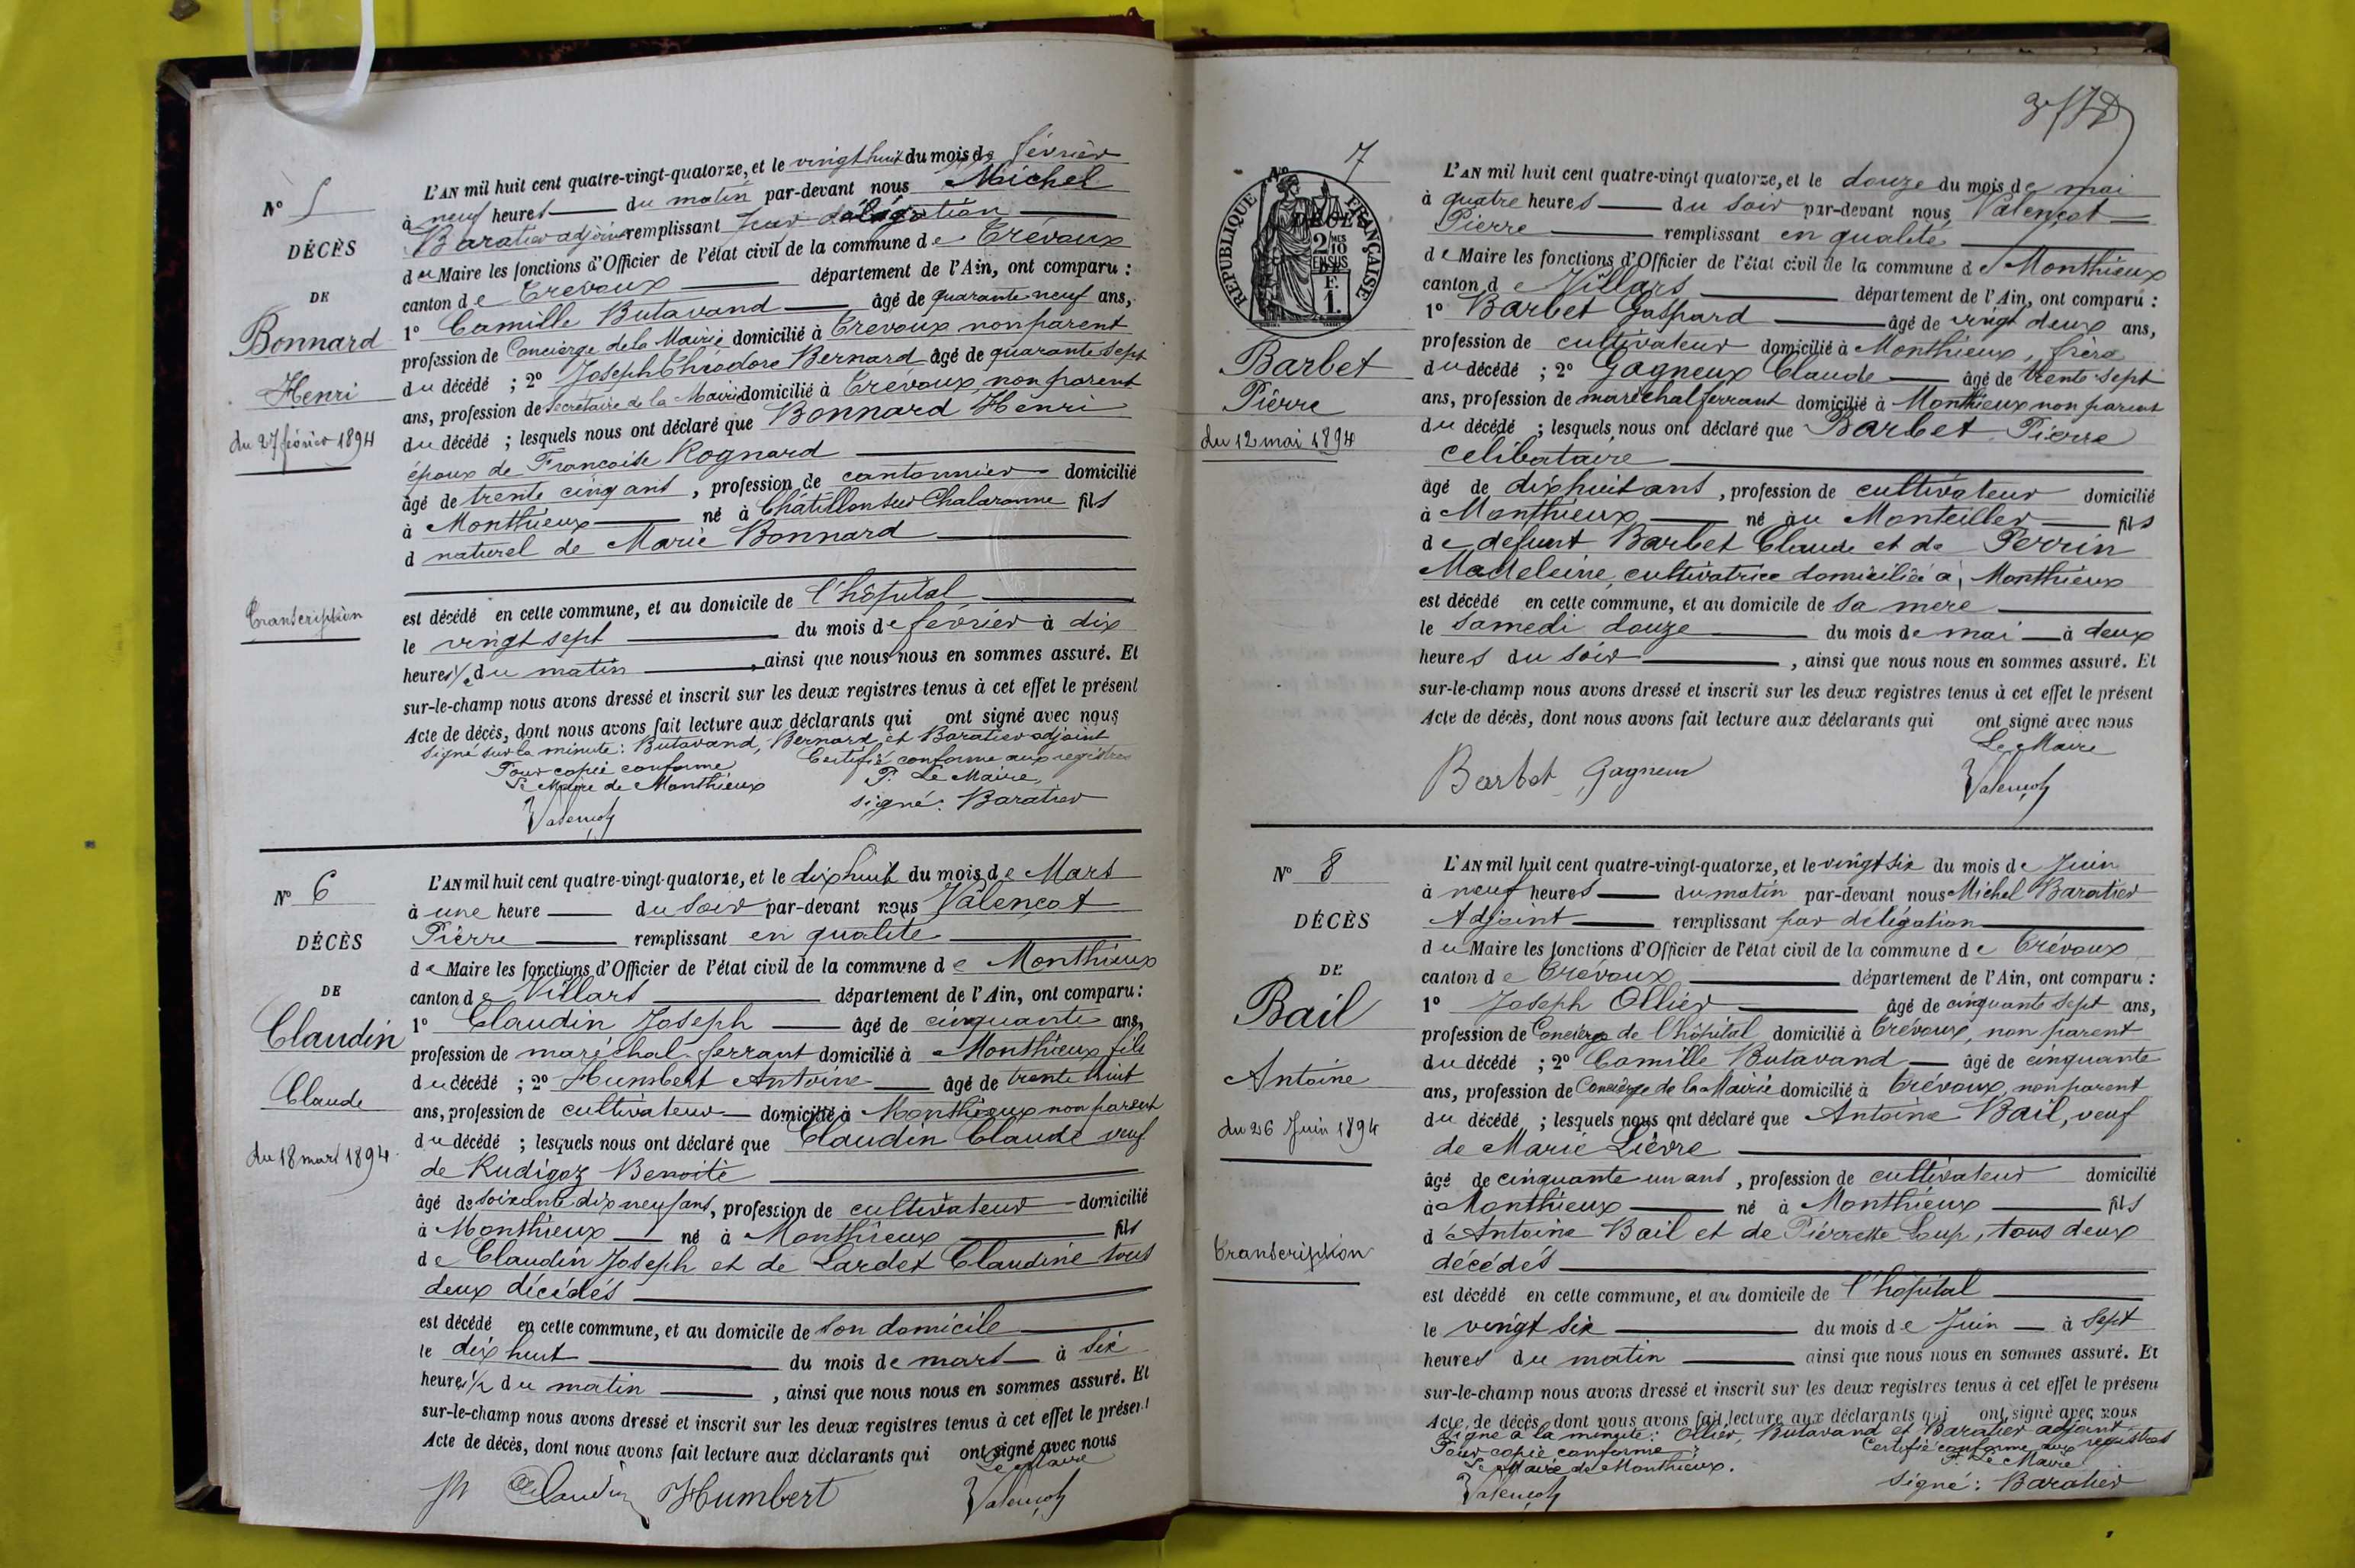 Nº 5
DÉCÈS
DE
Bonnard
Henri
du 27 février 1894
Transcription
L'AN mil huit cent quatre-vingt-quatorze, et le vingt huit du mois de février
à neuf heures du matin par-devant nous Michel
Baratier adjoint remplissant par délégation
du Maire les fonctions d'Officier de l'état civil de la commune de Trévoux
canton de Trevoux département de l'Ain, ont comparu :
1º Camille Butavand âgé de quarante neuf ans,
profession de Concierge de la Mairie domicilié à Trevoux non parent
du décédé ; 2º Joseph Théodore Bernard âgé de quarante sept
ans, profession de Secrétaire de la Mairie domicilié à Trévoux, non parent
du décédé ; lesquels nous ont déclaré que Bonnard Henri
époux de Françoise Rognard
âgé de trente cinq ans, profession de cantonnier domicilié
à Monthieux né à Châtillon sur Chalaronne fils
d naturel de Marie Bonnard
est décédé en cette commune, et au domicile de l'hôpital
le vingt sept du mois de février à dix
heures 1/2 du matin, ainsi que nous nous en sommes assuré. Et
sur-le-champ nous avons dressé et inscrit sur les deux registres tenus à cet effet le présent
Acte de décès, dont nous avons fait lecture aux déclarants qui ont signé avec nous
Signé sur la minute : Butavand, Bernard et Baratier adjoint
Pour copie conforme Certifié conforme aux registres
Le Maire de Monthieux P. Le Maire,
Valençot signé : Baratier
Nº 6
DÉCÈS
DE
Claudin
Claude
du 18 mars 1894
L'AN mil huit cent quatre-vingt-quatorze, et le dix huit du mois de Mars
à une heure du soir par-devant nous Valençot
Pierre remplissant en qualité
de Maire les fonctions d'Officier de l'état civil de la commune de Monthieux
canton de Villars département de l'Ain, ont comparu :
1º Claudin Joseph âgé de cinquante ans,
profession de maréchal-ferrant domicilié à Monthieux fils
du décédé ; 2º Humbert Antoine âgé de trente huit
ans, profession de cultivateur domicilié à Monthieux non parent
du décédé ; lesquels nous ont déclaré que Claudin Claude veuf
de Rudigoz Benoite
âgé de soixante dix neuf ans, profession de cultivateur domicilié
à Monthieux né à Monthieux fils
de Claudin Joseph et de Lardet Claudine tous
deux décédés
est décédé en cette commune, et au domicile de son domicile
le dix huit du mois de mars à six
heures 1/2 du matin, ainsi que nous nous en sommes assuré. Et
sur-le-champ nous avons dressé et inscrit sur les deux registres tenus à cet effet le présent
Acte de décès, dont nous avons fait lecture aux déclarants qui ont signé avec nous
Le Maire
Claudin Humbert Valençot
Nº 7
RÉPUBLIQUE FRANÇAISE
2/10 EN SUS
F.
1.
Barbet
Pierre
du 12 mai 1894
L'AN mil huit cent quatre-vingt quatorze, et le douze du mois de mai
à quatre heures du soir par-devant nous Valençot
Pierre remplissant en qualité
de Maire les fonctions d'Officier de l'état civil de la commune de Monthieux
canton de Villars département de l'Ain, ont comparu :
1º Barbet Gaspard âgé de vingt deux ans,
profession de cultivateur domicilié à Monthieux, frère
du décédé ; 2º Gagneux Claude âgé de trente sept
ans, profession de maréchal ferrant domicilié à Monthieux non parent
du décédé ; lesquels nous ont déclaré que Barbet Pierre
celibataire
âgé de dix huit ans, profession de cultivateur domicilié
à Monthieux né au Montellier fils
de defunt Barbet Claude et de Perrin
Madeleine, cultivatrice domiciliée à Monthieux
est décédé en cette commune, et au domicile de sa mere
le samedi douze du mois de mai à deux
heures du soir, ainsi que nous nous en sommes assuré. Et
sur-le-champ nous avons dressé et inscrit sur les deux registres tenus à cet effet le présent
Acte de décès, dont nous avons fait lecture aux déclarants qui ont signé avec nous
Le Maire
Barbet Gagneux Valençot
Nº 8
DÉCÈS
DE
Bail
Antoine
du 26 Juin 1894
Transcription
L'AN mil huit cent quatre-vingt-quatorze, et le vingt six du mois de Juin
à neuf heures du matin par-devant nous Michel Baratier
Adjoint remplissant par délégation
du Maire les fonctions d'Officier de l'état civil de la commune de Trévoux
canton de Trévoux département de l'Ain, ont comparu :
1º Joseph Ollier âgé de cinquante sept ans,
profession de Concierge de l'hôpital domicilié à Trévoux, non parent
du décédé ; 2º Camille Butavand âgé de cinquante
ans, profession de Concierge de la Mairie domicilié à Trévoux, non parent
du décédé ; lesquels nous ont déclaré que Antoine Bail, veuf
de Marie Lièvre
âgé de cinquante un ans, profession de cultivateur domicilié
à Monthieux né à Monthieux fils
d'Antoine Bail et de Pierrette Loup, tous deux
décédés
est décédé en cette commune, et au domicile de l'hôpital
le vingt six du mois de Juin à sept
heures du matin ainsi que nous nous en sommes assuré. Et
sur-le-champ nous avons dressé et inscrit sur les deux registres tenus à cet effet le présent
Acte de décès, dont nous avons fait lecture aux déclarants qui ont signé avec nous
Signé à la minute : Ollier, Butavand et Baratier adjoint
Pour copie conforme : Certifié conforme aux registres
Le Maire de Monthieux. P. Le Maire
Valençot Signé : Baratier